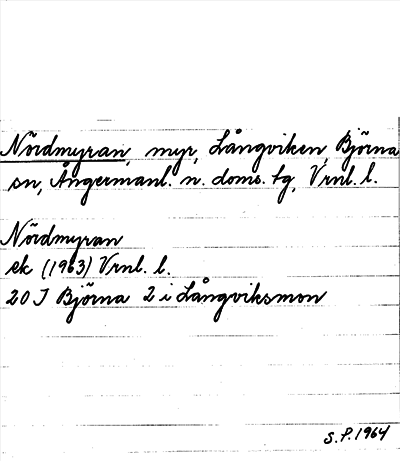 Nördmyran, myr, Långviken, Björna
sn, Ångermanl. n. doms. tg, Vrnl. l.
Nördmyran
ek (1963) Vrnl. l.
20 J Björna 2 i Långviksmon
S. P. 1964